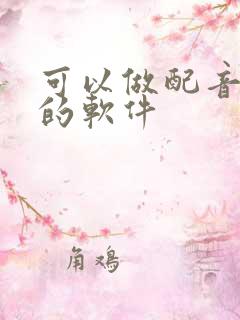 可以做配音
的軟件
角鸡